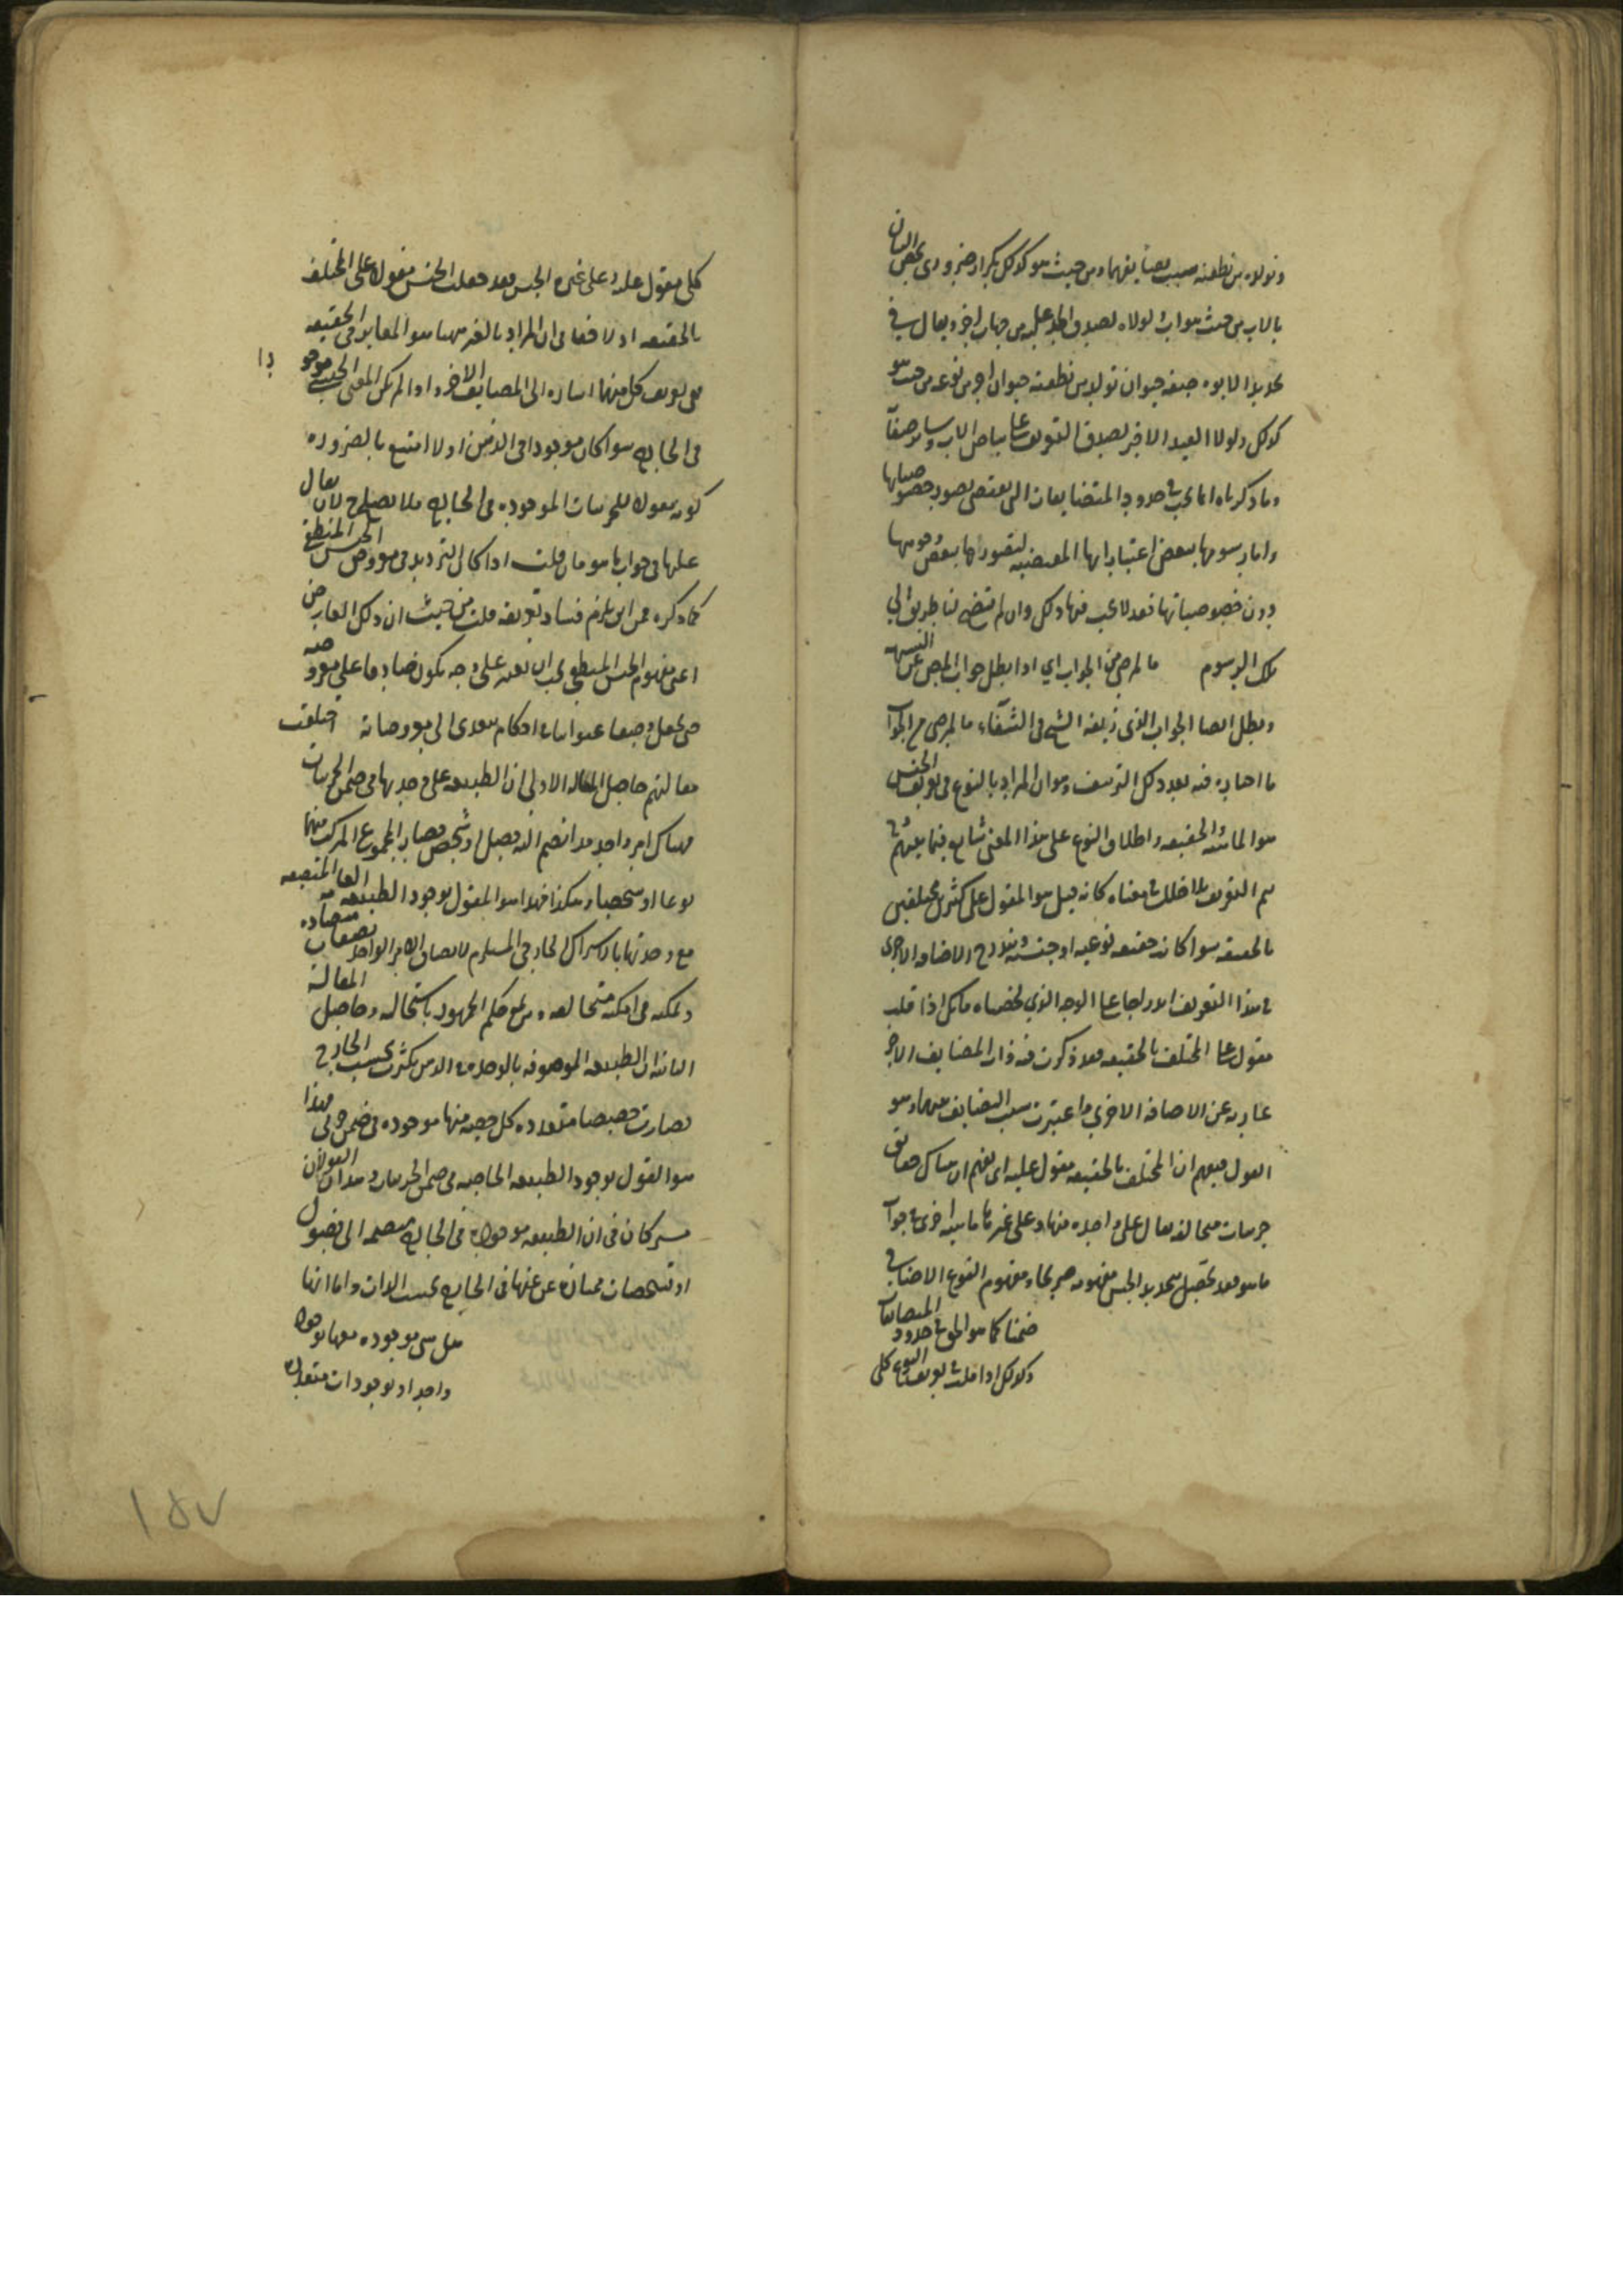 وتولده من نطفته سبب تضايفهما ومن حيث هو كذلك تكرار ضروري يحقق البيان
بالاب من حيث هو اب لولاه لصدق الحد عليه من جهات اخر ويقال في
تحديد الابوة صفة حيوان تولد من نطفته حيوان اخر من نوعه من حيث هو
كذلك ولولا القيد الاخير لصدق التعريف على بياض الاب وسائر صفاته
وما ذكرناه انما يجب في حدود المتضايفات التي يقتضي تصور خصوصياتها
واما رسومها ببعض اعتباراتها المقتضية لتصورها ببعض وجوهها
دون خصوصياتها فقد لا يجب فيها ذلك وان لم تتضح لنا طريق الى
تلك الرسوم ما لمرضي من الجواب اي اذا بطل جواب البعض عن الشبهة
وبطل ايضا الجواب الذي زيفه الشيخ في الشفاء ما لمرضي من الجواب
ما اختاره فيه بعد ذلك التزييف وهو ان المراد بالنوع في تعريف الجنس
هو الماهية والحقيقة واطلاق النوع على هذا المعنى شايع فيما بينهم
تم التعريف بلا خلل في معناه كانه قيل هو المقول على كثيرين مختلفين
بالحقيقة سواء كانت حقيقة نوعية او جنسية
في هذا التعريف اندراجا على الوجه الذي لخصناه فانك اذا قلت
مقول على المختلف بالحقيقة فقد ذكرت فيه ذات المضايف الاخر
عارية عن الاضافة الاخرى واعتبرت سبب التضايف بينهما وهو
القول فيفهم ان المختلف بالحقيقة مقول عليه اي يفهم ان هناك حقائق
جزئيات متخالفة يقال على واحدة منها وعلى غيرها ماهية اخرى في جواب
ما هو فقد تحصل بتحديد الجنس مفهومه صريحا ومفهوم النوع الاضافي
ضمنا كما هو الحق في حدود المتضايفات
وكذلك اذا قلت في تعريف النوع كلي
كلي مقول عليه وعلى غيره الجنس فقد جعلت الجنس مقولا على المختلف
بالحقيقة اذ لا خفاء في ان المراد بالغير ههنا هو المغاير في الحقيقة
ففي تعريف كل منهما اشارة الى المضايف الاخر واذا لم يكن المعنى الجنسي موجو
دا
في الخارج سواء كان موجودا في الذهن او لا امتنع بالضرورة
كونه مقولا للجزئيات الموجودة في الخارج فلا يصلح لان يقال
عليها في جواب ما هو فان قلت اذا كان الترديد في معروض الجنس المنطقي
كما ذكره فمن اين يلزم فساد تعريفه قلت من حيث ان ذلك العارض
اعني مفهوم الجنس المنطقي يجب ان يعرف على وجه يكون صادقا على معروضه
حتى يجعل وصفا عنوانيا في احكام تتعدى الى معروضاته اختلفت
مقالتهم حاصل المقالة الاولى ان الطبيعة على وحدتها في ضمن الجزئيات
فهناك امر واحد قد انضم اليه فصل او تشخص فصار المجموع المركب منهما
نوعا او شخصا وهكذا فهذا هو القول بوجود الطبيعة
مع وحدتها بالاشتراك الخارجي المستلزم لاتصاف الامر الواحد بصفات متضادة
وتمكنه في امكنة متخالفة ومع حكم الجمهور باستحالته وحاصل المقالة
الثانية ان الطبيعة الموصوفة بالوحدة في الذهن تكثرت بحسب الخارج
فصارت حصصا متعددة كل حصة منها موجودة في ضمن جزئي فهذا
هو القول بوجود الطبيعة الحاصلة في ضمن الجزئيات وهذان القولان
مشتركان في ان الطبيعة موجودة في الخارج منضمة الى فصول
او تشخصات ممتازة عن عينها في الخارج بحسب الذات واما انها
هل هي موجودة معها بوجود
واحد او بوجودات متعددة
١٥٧